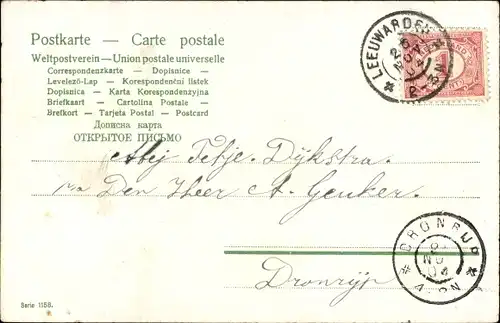 Postkarte — Carte postale
Weltpostverein — Union postale universelle
Correspondenzkarte — Dopisnice —
Levelező-Lap — Korespondenční listek
Dopisnica — Karta Korespondenzyjna
Briefkaart — Cartolina Postale —
Brefkort — Tarjeta Postal — Postcard
Дописна карта
ОТКРЫТОЕ ПИСЬМО
LEEUWARDEN
NOV
Mej Tetje Dijkstra.
p/a Den Heer A. Genker.
DRONRIJP
NOV
04
4-8N
Dronrijp
Serie 1158.